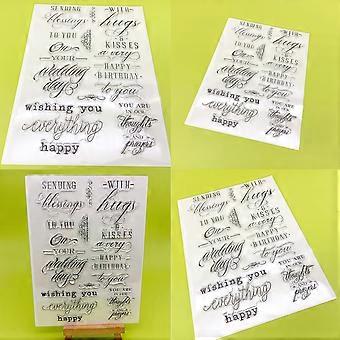 SENDING
blessings
TO YOU
On
YOUR
wedding
day
WITH
hugs
&
KISSES
a very
HAPPY
BIRTHDAY
to you
wishing you
everything
happy
YOU ARE
IN OUR
thoughts
AND
prayers
SENDING
blessings
TO YOU
On
YOUR
wedding
day
WITH
hugs
&
KISSES
a very
HAPPY
BIRTHDAY
to you
wishing you
everything
happy
YOU ARE
IN OUR
thoughts
AND
prayers
SENDING
blessings
TO YOU
On
YOUR
wedding
day
WITH
hugs
&
KISSES
a very
HAPPY
BIRTHDAY
to you
wishing you
everything
happy
YOU ARE
IN OUR
thoughts
AND
prayers
SENDING
blessings
TO YOU
On
YOUR
wedding
day
WITH
hugs
&
KISSES
a very
HAPPY
BIRTHDAY
to you
wishing you
everything
happy
YOU ARE
IN OUR
thoughts
AND
prayers